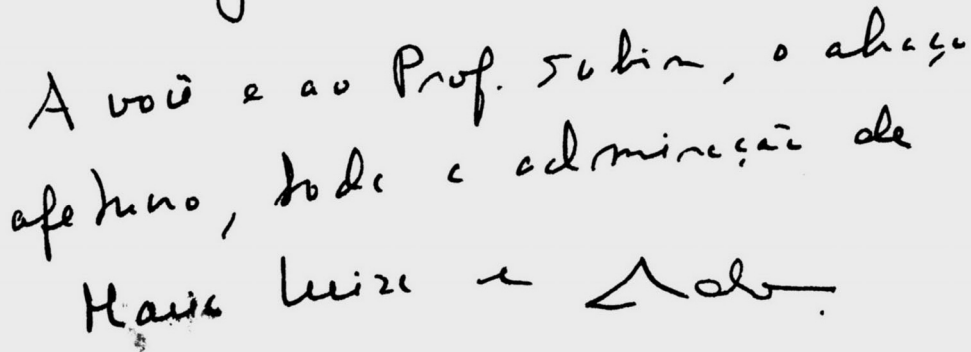 A você e ao Prof. Subin, o abraço
afetuoso, toda a admiração de
Maria Luiza e